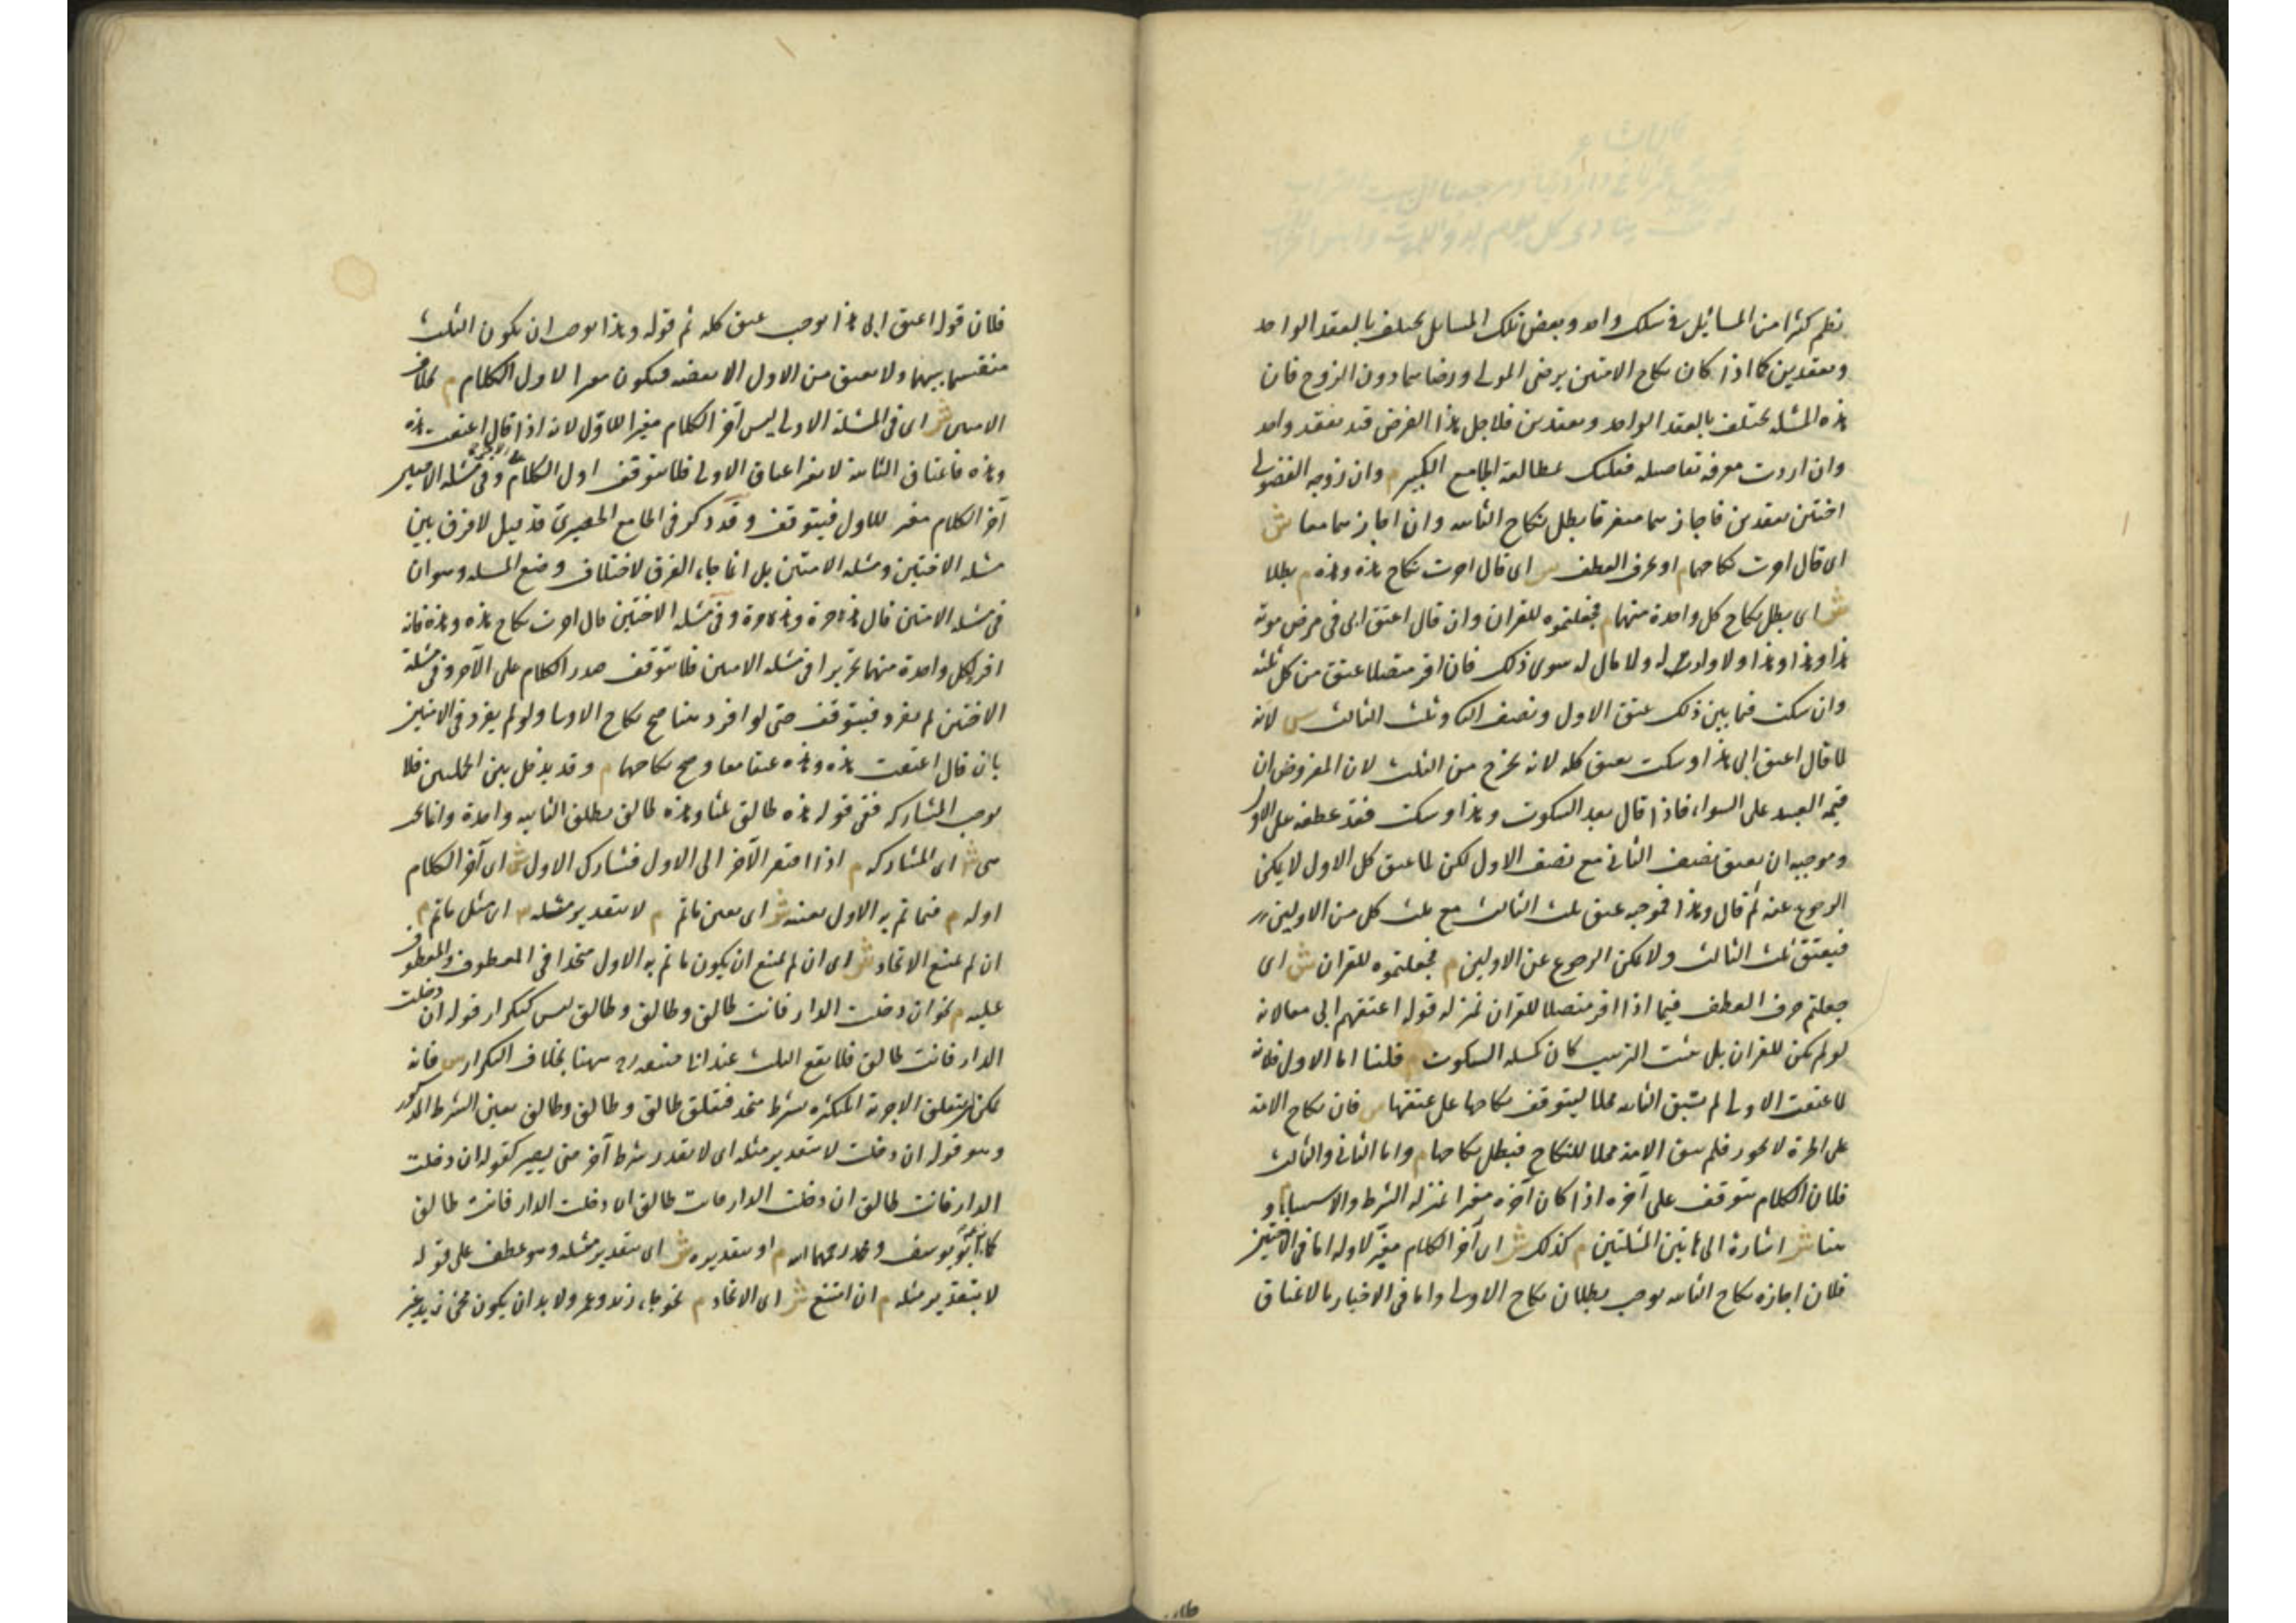 نظم كثيرا من المسائيل في سلك واحد وبعض تلك المسايل يختلف بالعقد الواحد
وبعقدين كما اذا كان نكاح الامتين برضى المولى ورضاهما دون الزوج فان
هذه المسئلة يختلف بالعقد الواحد وبعقدين فلاجل هذا الغرض قيد بعقد واحد
وان اردت معرفة تفاصيله فعليك بمطالعة الجامع الكبير م وان زوجه الفضولى
اختين بعقدين فاجازهما متفرقا بطل نكاح الثانية وان اجازهما معا ش
اى قال اجزت نكاحهما م او بحرف العطف ش اى قال اجزت نكاح هذه وهذه م بطلا
ش اى بطل نكاح كل واحدة منهما م فجعلتموه للقران وان قال اعتق ابى فى مرض موته
هذا وهذا وهذا ولا وارث له ولا مال له سوى ذلك فان اقر متصلا عتق من كل ثلثه
وان سكت فيما بين ذلك عتق الاول ونصف الثانى وثلث الثالث ش لانه
لما قال اعتق ابى هذا وسكت يعتق كله لانه يخرج من الثلث لان المفروض ان
قيمة العبيد على السواء فاذا قال بعد السكوت وهذا وسكت فقد عطفه على الاول
وموجبه ان يعتق نصف الثانى مع نصف الاول لكن لما عتق كل الاول لا يمكن
الرجوع عنه ثم قال وهذا فموجبه عتق ثلث الثالث مع ثلث كل من الاولين
فيعتق ثلث الثالث ولا يمكن الرجوع عن الاولين م فجعلتموه للقران ش اى
جعلتم حرف العطف فيما اذا اقر متصلا للقران بمنزلة قوله اعتقهم ابى معا لانه
لو لم يكن للقران بل يثبت الترتيب كان كمسئلة السكوت م قلنا اما الاول فلانه
لما عتقت الاولى لم تبق الثانية محلا ليتوقف نكاحها على عتقها ش فان نكاح الامة
على الحرة لا يجوز فلم تبق الامة محلا للنكاح فبطل نكاحها م واما الثانى والثالث
فلان الكلام يتوقف على آخره اذا كان آخره مغيرا بمنزلة الشرط والاستثناء و
هنا ش اشارة الى هاتين المسئلتين م كذلك ش اى آخر الكلام مغير لاوله اما فى الاختين
فلان اجازة نكاح الثانية يوجب بطلان نكاح الاولى واما فى الاخبار بالاعتاق
فلان قوله اعتق ابى هذا يوجب عتق كله ثم قوله وهذا يوجب ان يكون الثلث
منقسما بينهما ولا يعتق من الاول الا بعضه فيكون مغيرا لاول الكلام م بخلاف
الامتين ش اى فى المسئلة الاولى ليس آخر الكلام مغيرا للاول لانه اذا قال اعتقت هذه
وهذه فاعتاق الثانية لا يغير اعتاق الاولى فلا يتوقف اول الكلام على الآخر وفى مسئلة الاختين
آخر الكلام مغير للاول فيتوقف وقد ذكر فى الجامع الحصيرى قد قيل لا فرق بين
مسئلة الاختين ومسئلة الامتين بل انما جاء الفرق لاختلاف وضع المسئلة وهو ان
فى مسئلة الامتين قال هذه حرة وهذه حرة وفى مسئلة الاختين قال اجزت نكاح هذه وهذه فانه
افرد لكل واحدة منهما تحريرا فى مسئلة الامتين فلا يتوقف صدر الكلام على الآخر وفى مسئلة
الاختين لم يفرد فيتوقف حتى لو افرد هنا صح نكاح الاولى ولو لم يفرد فى الامتين
بان قال اعتقت هذه وهذه عتقا معا وصح نكاحهما م وقد يدخل بين الجملتين فلا
يوجب المشاركة ففى قوله هذه طالق ثلثا وهذه طالق يطلق الثانية واحدة وانما يجب
هى ش اى المشاركة م اذا افتقر الآخر الى الاول فتشارك الاول ش اى آخر الكلام
اوله م فيما تم به الاول بعينه ش اى بعين ما تم م لا بتقدير مثله ش اى مثل ما تم م
ان لم يمتنع الاتحاد ش اى ان لم يمتنع ان يكون ما تم به الاول متحدا فى المعطوف والمعطوف
عليه م نحو ان دخلت الدار فانت طالق وطالق وطالق ليس كتكرار قوله ان دخلت
الدار فانت طالق فلا يقع الثلث عند ابى حنيفة رح ههنا بخلاف التكرار ش فانه
يمكن ان يتعلق الاجزية المتكثرة بشرط متحد فتعلق طالق وطالق وطالق بعين الشرط المذكور
وهو قوله ان دخلت لا بتقدير مثله اى لا يقدر شرط آخر حتى يصير كقوله ان دخلت
الدار فانت طالق ان دخلت الدار فانت طالق ان دخلت الدار فانت طالق
كما زعم ابو يوسف ومحمد رحمهما الله م او بتقديره ش اى بتقدير مثله وهو عطف على قوله
لا بتقدير مثله م ان امتنع ش اى الاتحاد م نحو جاء زيد وعمرو ولا بد ان يكون مجئ زيد غير